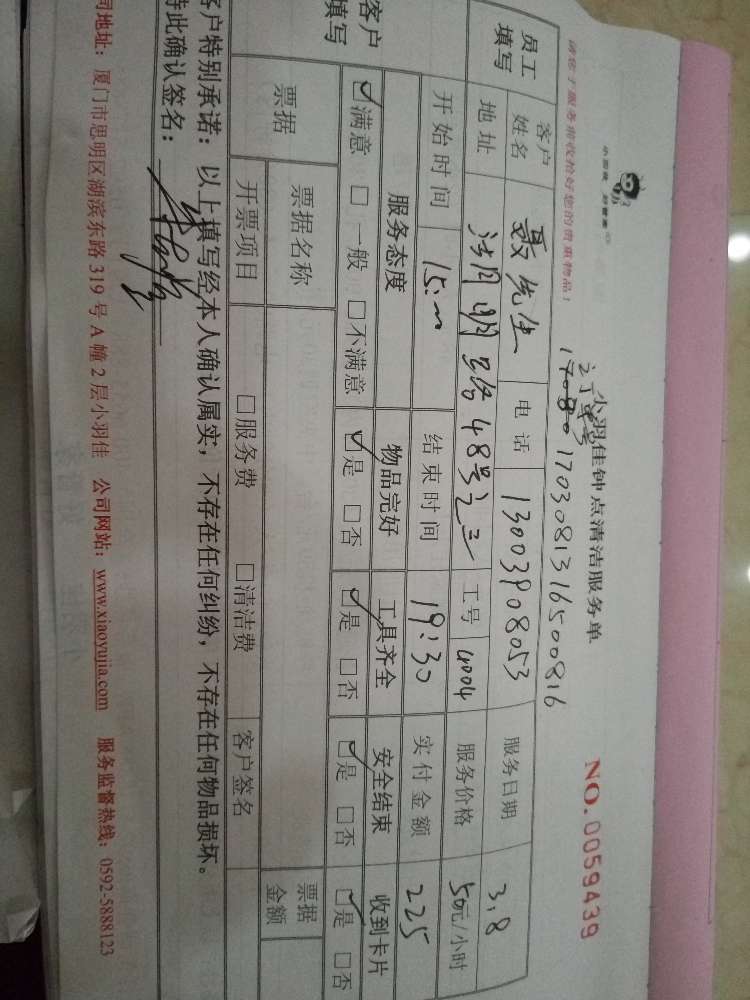 请您于服务前收拾好您的贵重物品!
小羽佳钟点清洁服务单
NO.0059439
订单号 1703081316500816
员工填写 客户姓名 聂先生 电话 13003908053 服务日期 3.8
地址 湖明路48号之二 工号 4004 服务价格 50元/小时
开始时间 15:00 结束时间 19:30 实付金额 225
客户填写 服务态度 物品完好 工具齐全 安全结束 收到卡片
☑满意 □一般 □不满意 ☑是 □否 ☑是 □否 ☑是 □否 ☑是 □否
票据 票据名称 票据金额
开票项目 □服务费 □清洁费 客户签名
客户特别承诺:以上填写经本人确认属实,不存在任何纠纷,不存在任何物品损坏。
特此确认签名:
司地址:厦门市思明区湖滨东路319号A幢2层小羽佳 公司网站:www.xiaoyujia.com 服务监督热线:0592-5888123